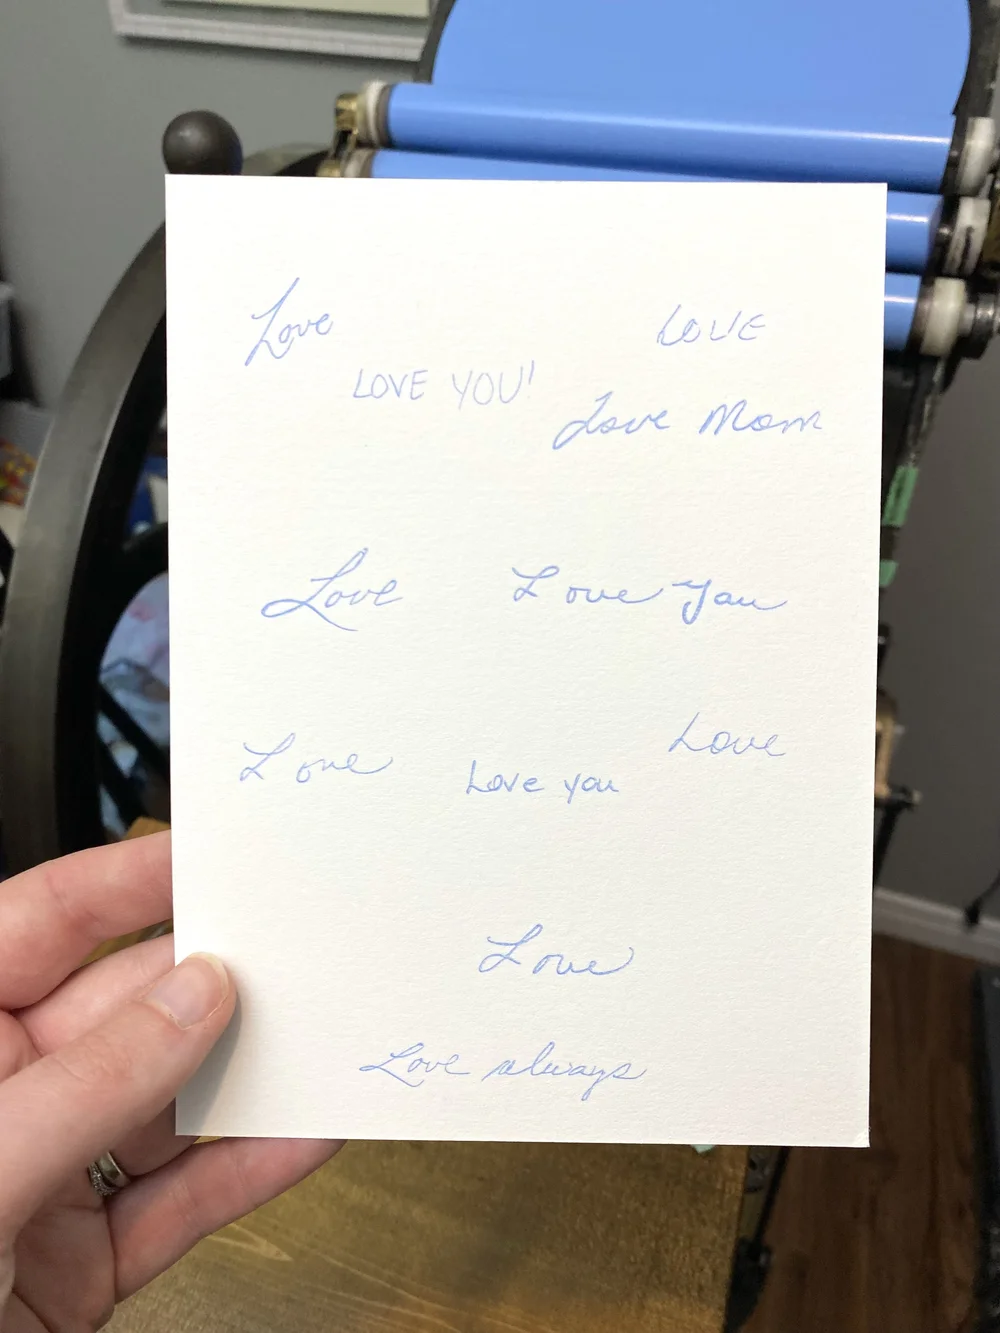 Love
LOVE
LOVE YOU!
Love Mom
Love
Love You
Love
Love
Love you
Love
Love always